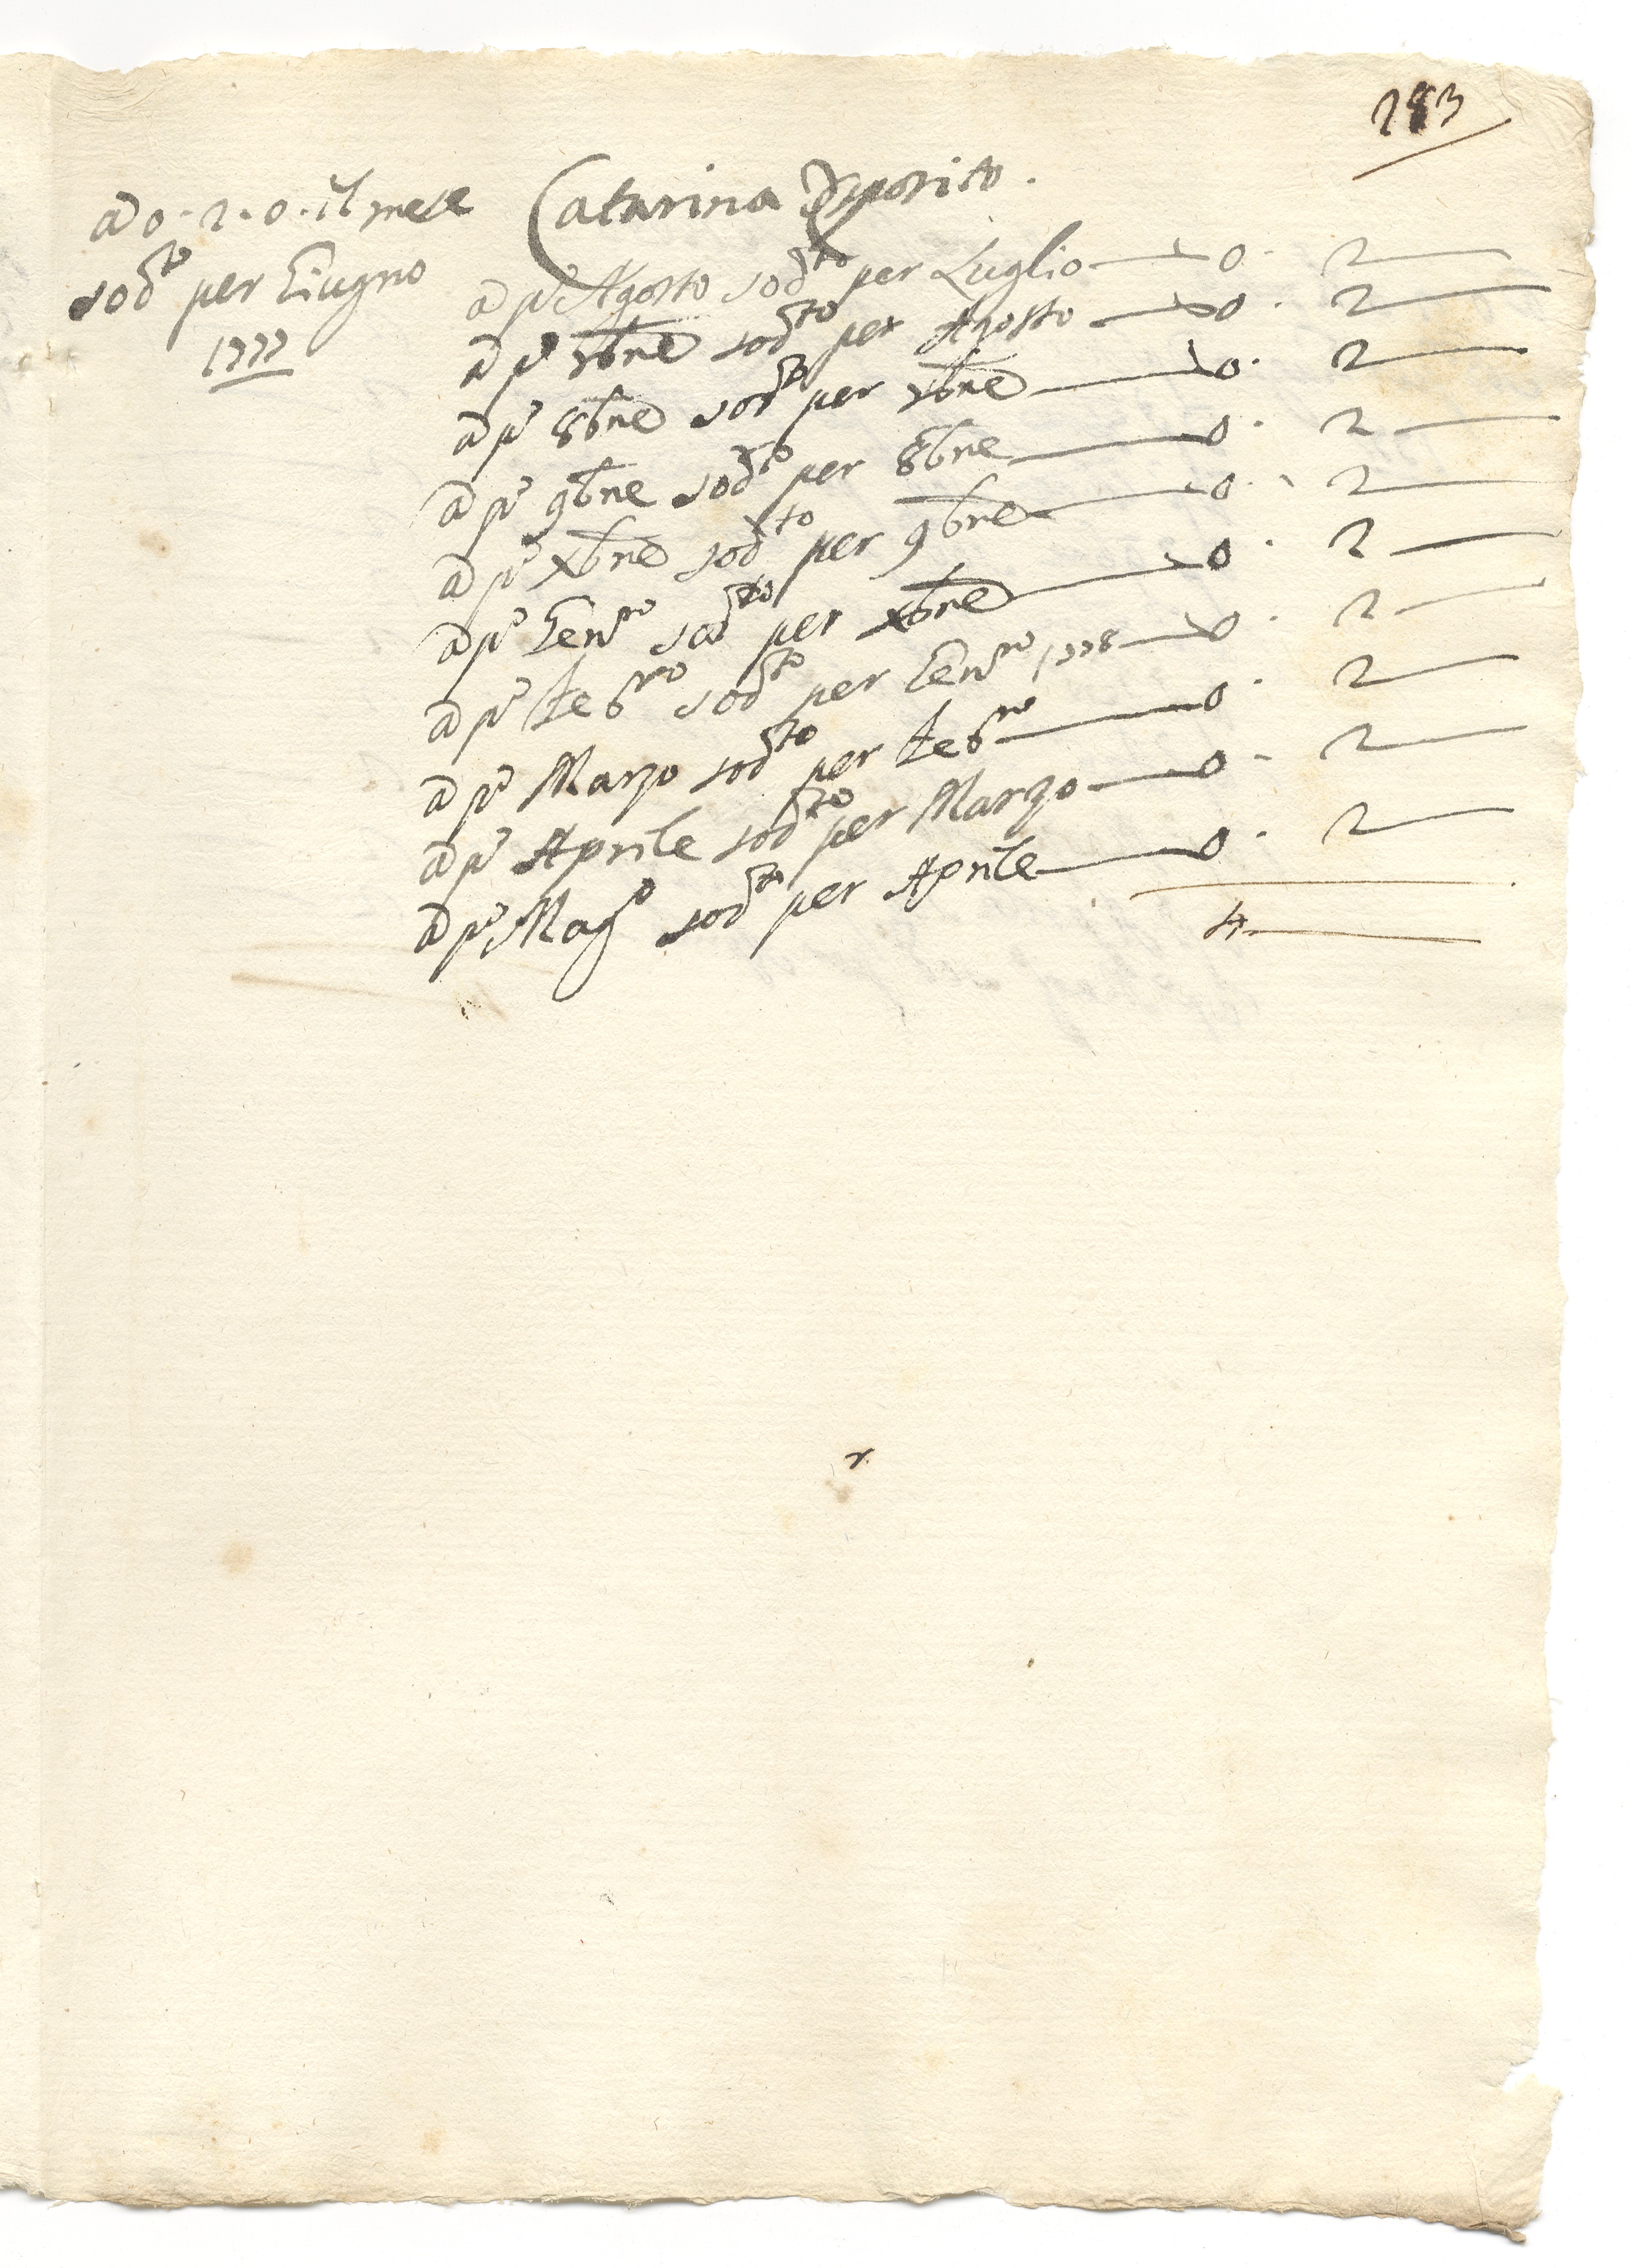 283
a 0.2.0. il mese
sod.to per Giugno
1777
Catarina Esposito.
a p.o Agosto sod.to per Luglio — 0. 2 —
a p.o 7bre sod.to per Agosto — 0. 2 —
a p.o 8bre sod.to per 7bre — 0. 2 —
a p.o 9bre sod.to per 8bre — 0. 2 —
a p.o xbre sod.to per 9bre — 0. 2 —
a p.o Gen.ro sod.to per xbre — 0. 2 —
a p.o feb.ro sod.to per Gen.ro 1778 — 0. 2 —
a p.o Marzo sod.to per feb.ro — 0. 2 —
a p.o Aprile sod.to per Marzo — 0. 2 —
a p.o Mag.o sod.to per Aprile — 0. 2 —
4 —